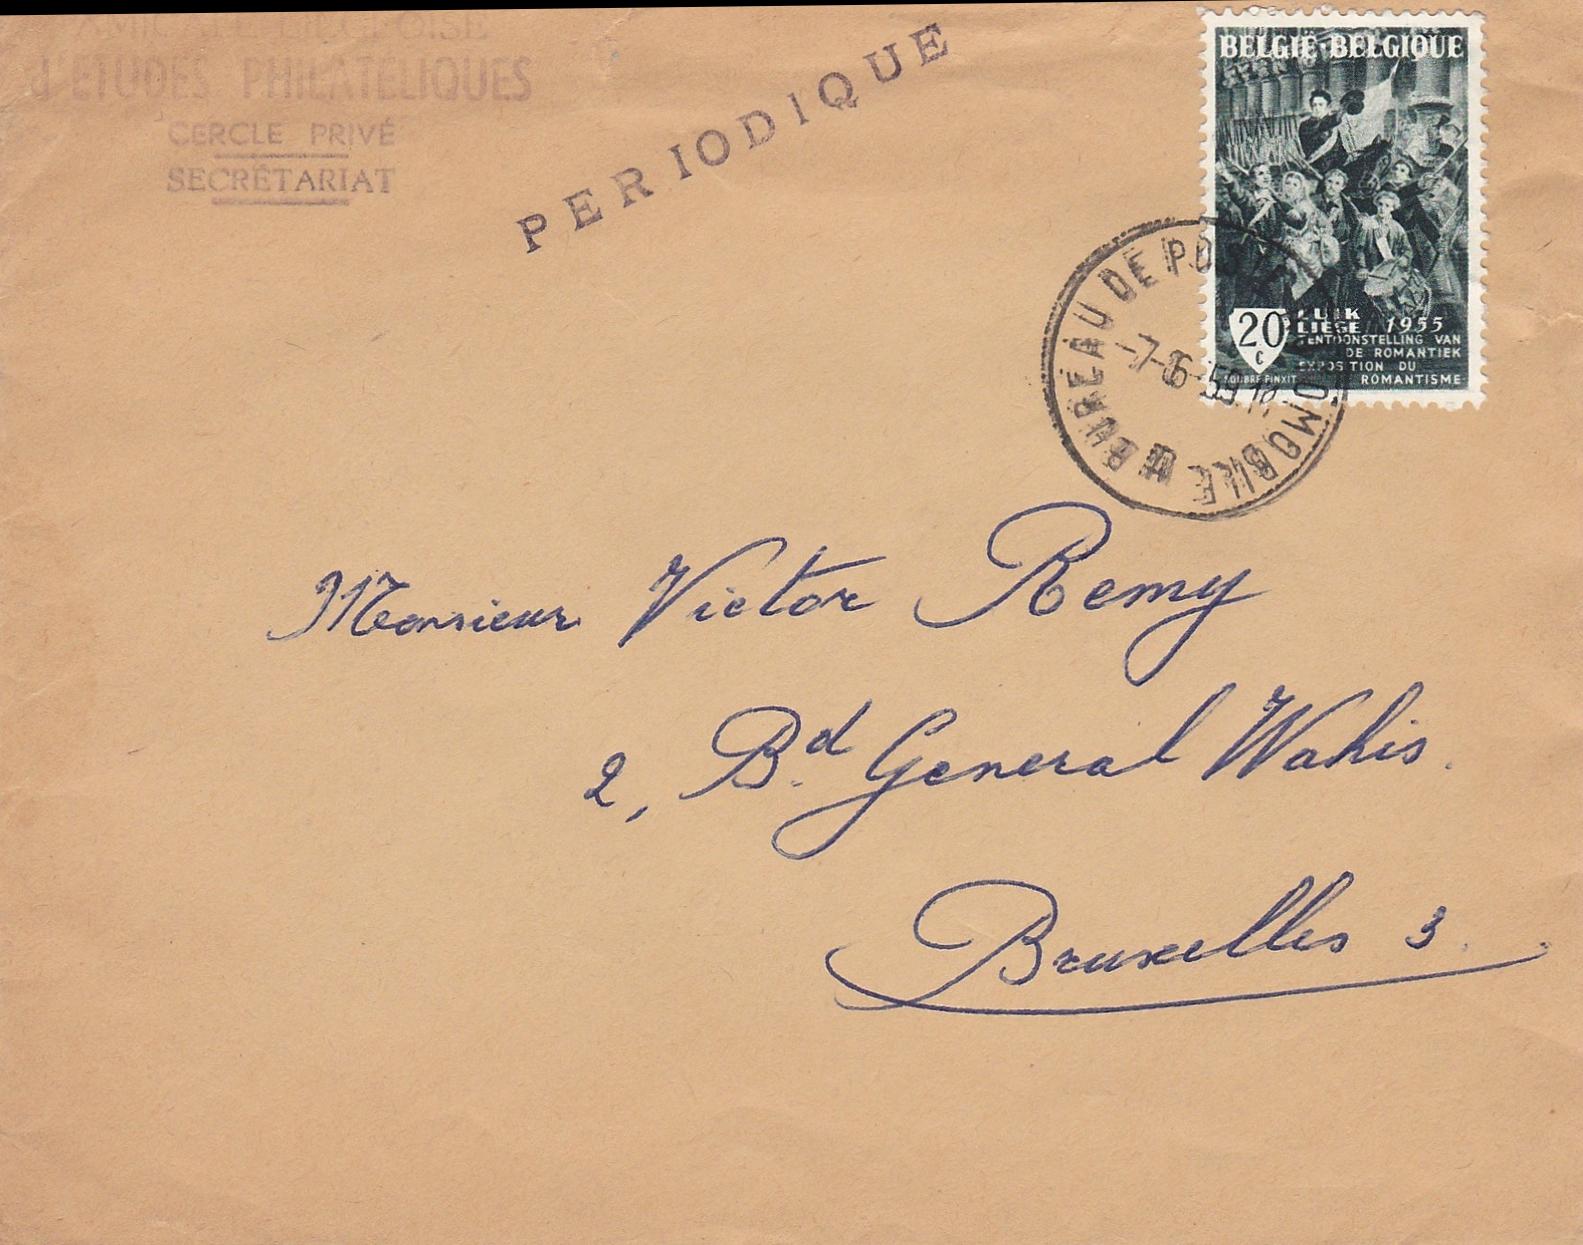 AMICALE LIEGEOISE
d'ETUDES PHILATELIQUES
CERCLE PRIVÉ
SECRÉTARIAT
PERIODIQUE
BELGIË·BELGIQUE
20 c
LUIK
LIÈGE 1955
TENTOONSTELLING VAN
DE ROMANTIEK
EXPOSITION DU
ROMANTISME
SOUBRE PINXIT
BUREAU DE POSTE
-7-6-59
Monsieur Victor Remy
2, Bd General Wahis.
Bruxelles 3.